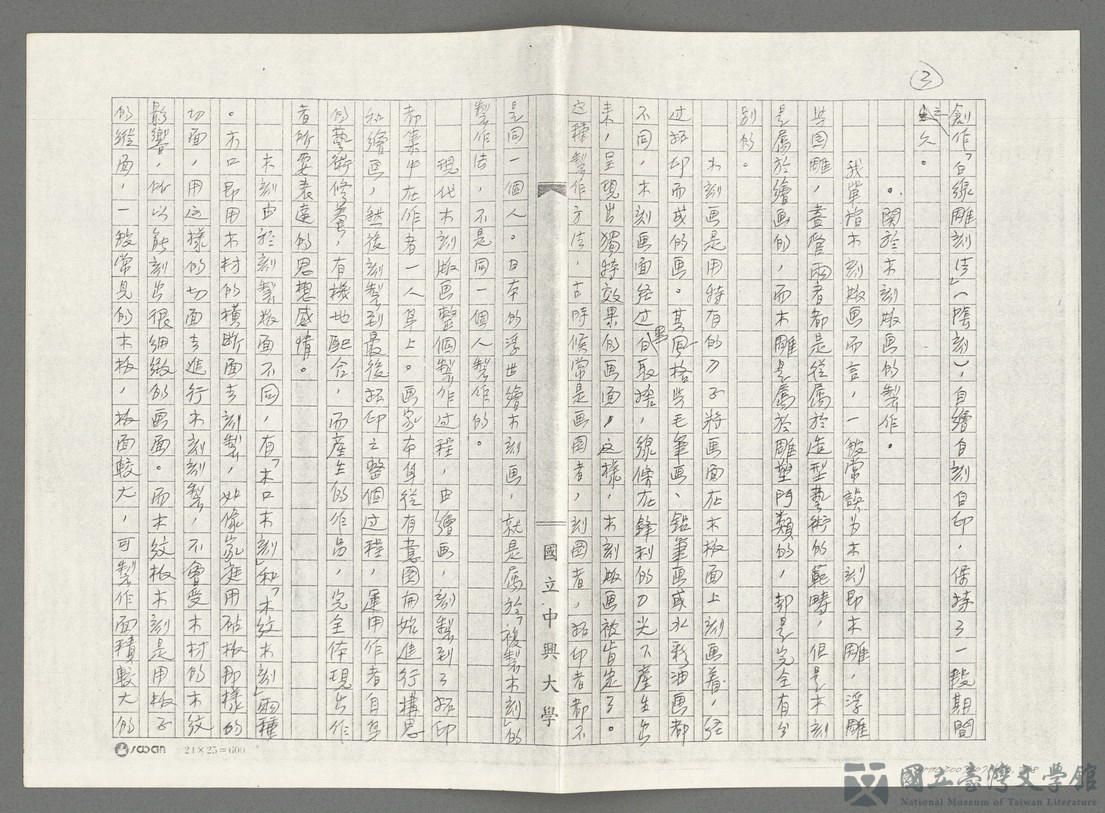 3
創作「白線雕刻法」(陰刻),自繪自刻自印,保持了一段期間
三久。
。關於木刻版画的製作。
我單指木刻版画而言,一般常誤为木刻即木雕,浮雕
与图雕,盡管兩者都是從属於造型藝術的範疇,但是木刻
是属於繪画的,而木雕是属於雕塑門類的,却是完全有分
别的。
木刻画是用特有的刀子將画面在木板面上刻画着,经
过拓印而成的画。其風格与毛筆画、鉛筆画或水彩油画都
不同,木刻画面经过黑白取捨,線條在鋒利的刀光下產生出
来,呈現出獨特效果的画面。这樣,木刻版画被肯定了。
这種製作方法,古時候常是画图者,刻图者,拓印者都不
是同一個人。日本的浮世繪木刻画,就是属於「複製木刻」的
製作法,不是同一個人製作的。
現代木刻版画整個製作过程,由繪画,刻製到了拓印
都集中在作者一人身上。画家本身從有意图開始進行構思
和繪画,然後刻製到最後拓印之整個过程,運用作者自身
的藝術修養,有機地配合,而產生的作品,完全体現出作
者所要表達的思想感情。
木刻由於刻製板面不同,有「木口木刻」和「木紋木刻」兩種
。木口即用木材的橫斷面去刻製,如像家庭用砧板那樣的
切面,用这樣的切面去進行木刻刻製,不會受木材的木紋
影響,所以能刻出很細緻的画面。而木紋板木刻是用板子
的縱面,一般常見的木板,板面較大,可製作面積較大的
國立中興大學
sowan
24×25=600
國立臺灣文學館
National Museum of Taiwan Literature